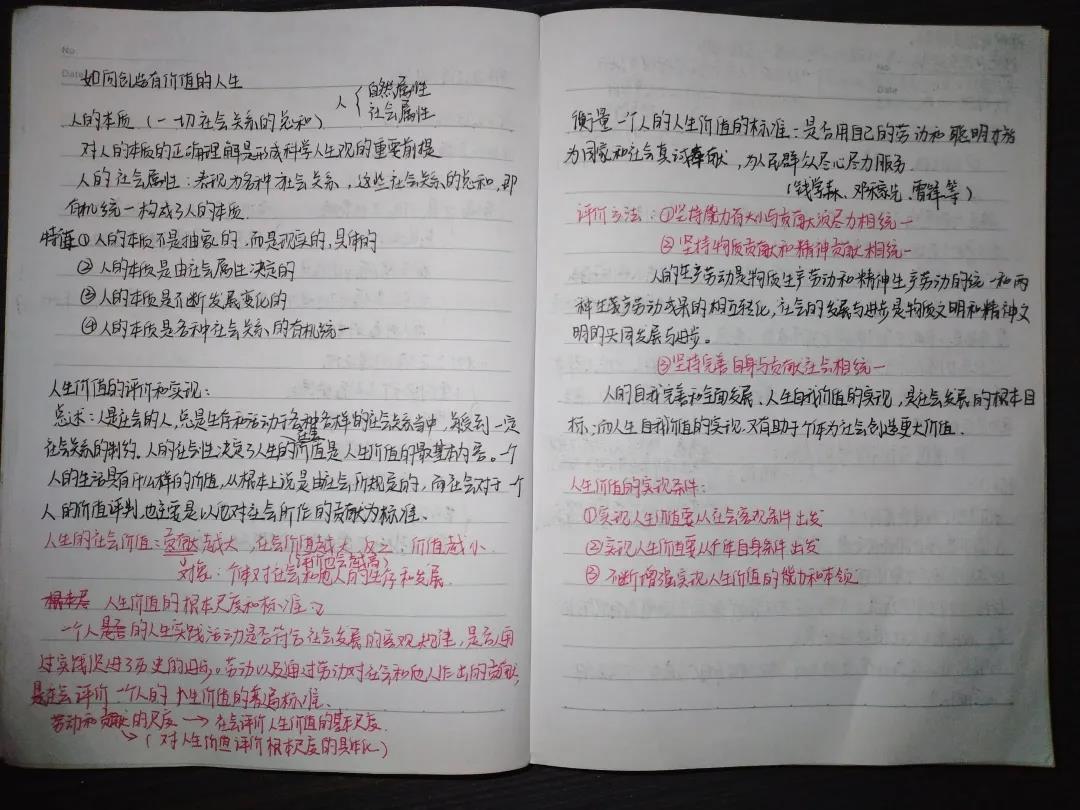 No.
Date
如何创造有价值的人生
人的本质（一切社会关系的总和）人{自然属性
社会属性
对人的本质的正确理解是形成科学人生观的重要前提
人的社会属性：表现为各种社会关系，这些社会关系的总和，即
有机统一构成了人的本质.
特征①人的本质不是抽象的，而是现实的，具体的
②人的本质是由社会属性决定的
③人的本质是不断发展变化的
④人的本质是各种社会关系的有机统一
人生价值的评价和实现：
总述：人是社会的人，总是生存和活动于各种各样的社会关系当中，总受到一定
社会关系的制约。人的社会性决定了人生的社会价值是人生价值的最基本内容。一个
人的生活具有什么样的价值，从根本上说是由社会所规定的，而社会对于一个
人的价值评判，也主要是以他对社会所作的贡献为标准、
人生的社会价值：贡献越大，社会价值越大，反之，价值越小
（评价也会越高）
对象：个体对社会和他人的生存和发展.
人生价值的根本尺度和标准
一个人的人生实践活动是否符合社会发展的客观规律，是否通
过实践促进了历史的进步。劳动以及通过劳动对社会和他人作出的贡献，
是社会评价一个人的人生价值的普遍标准、
劳动和贡献的尺度→社会评价人生价值的基本尺度.
→（对人生价值评价根本尺度的具体化）
No.
Date
衡量一个人的人生价值的标准：是否用自己的劳动和聪明才智
为国家和社会真诚奉献，为人民群众尽心尽力服务.
（钱学森、邓稼先，雷锋等）
评价方法：①坚持能力有大小与贡献大须尽力相统一
②坚持物质贡献和精神贡献相统一
人的生产劳动是物质生产劳动和精神生产劳动的统一和两
种生产劳动成果的相互转化，社会的发展与进步是物质文明和精神文
明的共同发展与进步。
③坚持完善自身与贡献社会相统一
人的自我完善和全面发展、人生自我价值的实现，是社会发展的根本目
标；而人生自我价值的实现，又有助于个体为社会创造更大价值.
人生价值的实现条件：
①实现人生价值要从社会客观条件出发
②实现人生价值要从个体自身条件出发
③不断增强实现人生价值的能力和本领